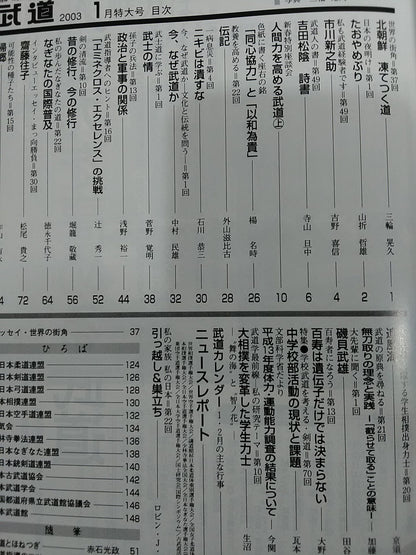 武道 2003 1月特大号 目次
世界の街角=第37回
北朝鮮 凍てつく道 三輪晃久
日本の夜明け=第1回
たおやめぶり 山折哲雄 4
私も武道経験者です=第49回
市川新之助 吉野喜信 4
武道人の書=第49回
吉田松陰 詩書 寺山旦中 6
新春特別座談会
人間力を高める武道㊤ 10
色紙に書く座右の銘
「同心協力」と「以和為貴」 楊名時 26
教養を高める=第22回
伝言 外山滋比古 28
一病息災=第1回
ニキビは潰すな 石川恭三 30
今、なぜ武道か―文化と伝統を問う―=第1回
今、なぜ武道か 中村民雄 32
武士道に学ぶ=第1回
武士の情 菅野覚明 38
孫子の兵法=第13回
政治と軍事の関係 浅野裕一 44
武道指導者へのヒント=第16回
「エネクロス・エクセレンス」の挑戦 辻秀一 52
剣の源流=第10回
昔の修行今の修行 堀籠敬蔵 56
私の歩んだなぎなたの道=第22回
なぎなたの国際普及 徳永千代子 64
インタビューエッセイ・まっ向勝負=第30回
齋藤往子 松尾貴之 72
可能性の種子たち=第15回
ッセイ・世界の街角 37
ひろば
日本柔道連盟 124
日本剣道連盟 126
日本弓道連盟 128
日本相撲連盟 130
日本空手道連盟 132
気会 134
林寺拳法連盟 136
日本なぎなた連盟 138
日本銃剣道連盟 140
本古武道協会 142
本武道学会 144
道府県立武道館協議会 146
本武道館 148
随筆
とほねつぎ 赤石光政 51
する学生相撲出身力士=第2回
武道の原典を尋ねる=第21回
無刀取りの理念と実践―「截らせて取る」ことの意味―
大先輩に聞く=第1回
磯貝武雄
百寿者になろう=第13回
百寿は遺伝子だけでは決まらない
特集●学校武道を考える・剣道=第70回
中学校部活動の現状と課題
文部科学省だより
平成13年度体力・運動能力調査の結果について
武道学最前線・私の研究テーマ=第10回
大相撲を変革した学生力士
―「舞の海」と「智ノ花」―
武道カレンダー 1・2月の主な行事
ニュースレポート
私の家族 私の日本=第22回
引っ越し&巣立ち ロビン・J
生沼
今関
瓦本
大野